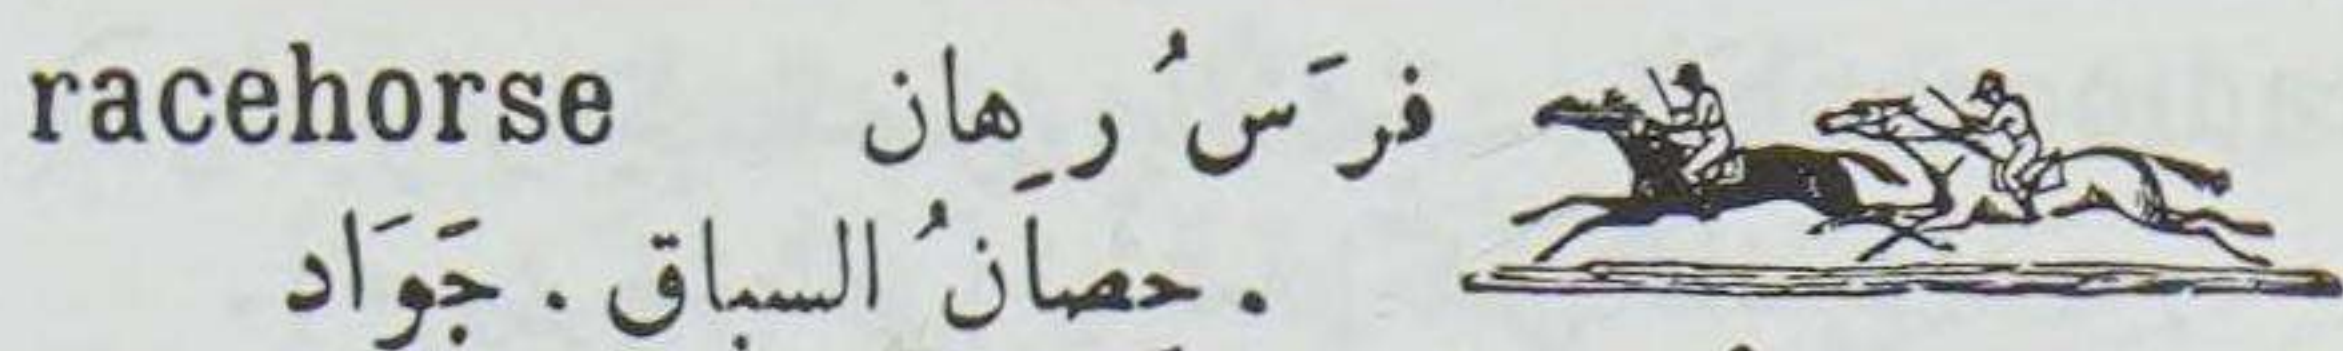 racehorse فرَسُ رِهان
. حصانُ السباق . جَوَاد